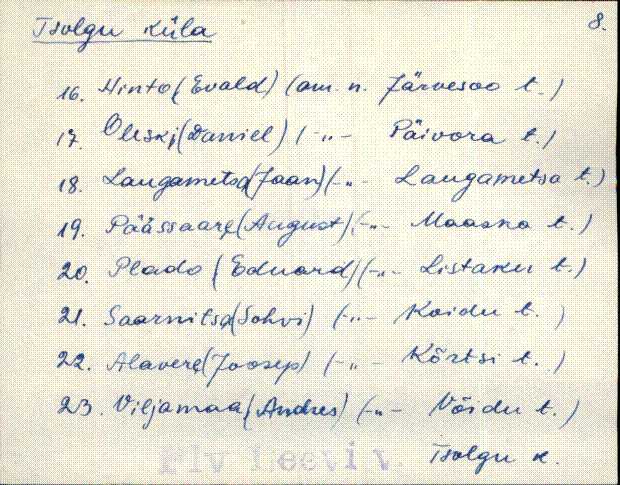 Tsolgu küla
8.
16. Hinto, (Evald) (am. n. Järvesoo t.)
17. Oleski, (Daniel) (-„- Päivora t.)
18. Laugametsa, (Jaan) (-„- Laugametsa t.)
19. Päässaare, (August) (-„- Maaska t.)
20. Plado (Eduard) (-„- Listaku t.)
21. Saarnitsa, (Sohvi) (-„- Koidu t.
22. Alavere, (Joosep) (-„- Kõrtsi t.)
23. Viljamaa, (Andres) (-„- Võidu t.)
Plv Leevi v. Tsolgu k.